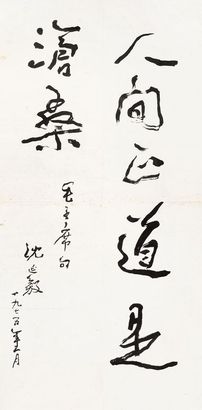 人间正道是
沧桑
毛主席句
沈延毅
一九七六年五月